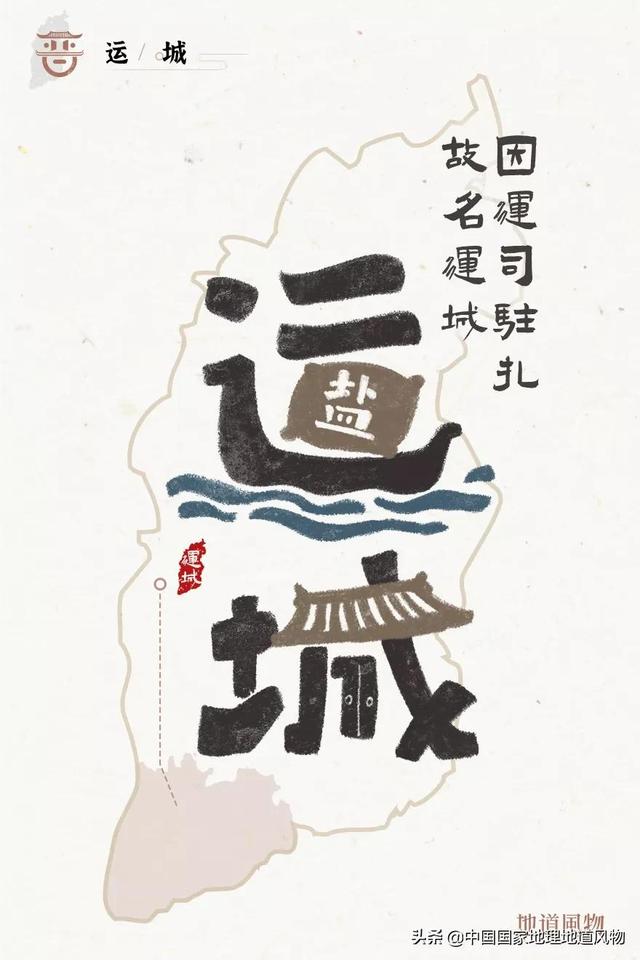 晋
运/城
因運司駐扎
故名運城
运
盐
城
運城
地道風物
头条 @中国国家地理地道风物